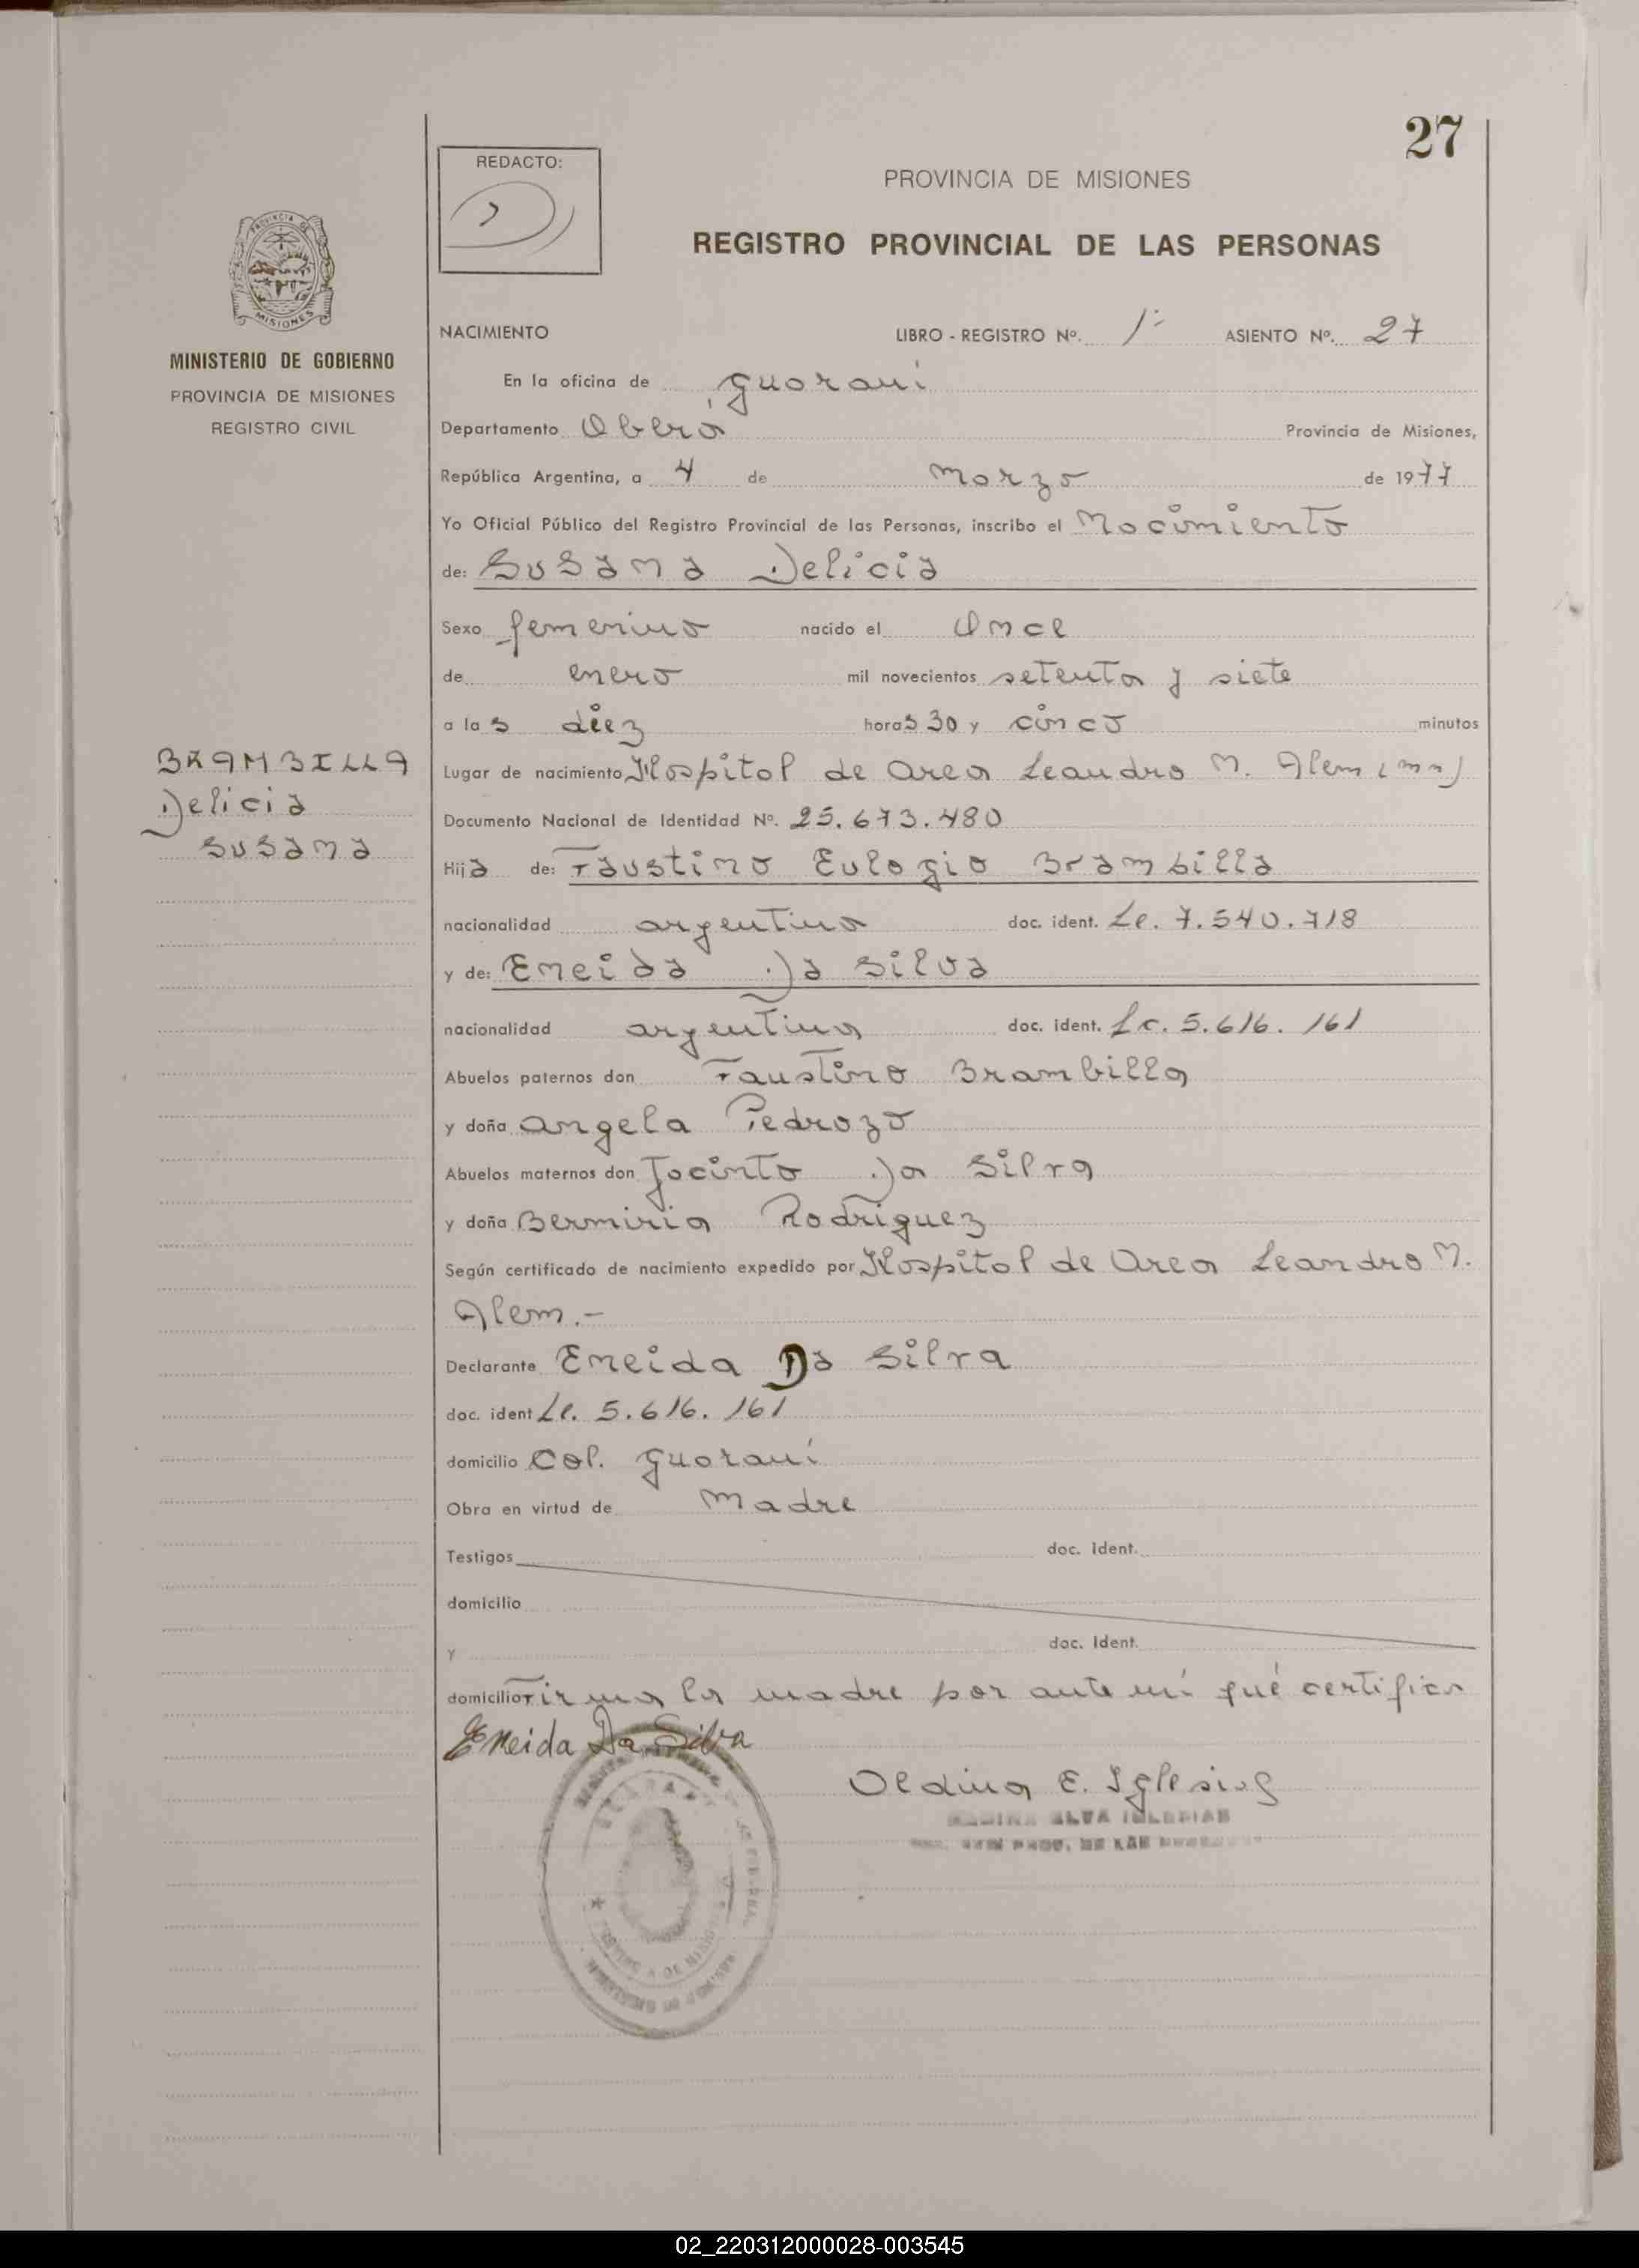 27
REDACTO:
PROVINCIA DE MISIONES
REGISTRO PROVINCIAL DE LAS PERSONAS
MISIONES
MINISTERIO DE GOBIERNO
PROVINCIA DE MISIONES
REGISTRO CIVIL
NACIMIENTO LIBRO - REGISTRO Nº. 1º ASIENTO Nº. 27
En la oficina de guarani
Departamento Oberá Provincia de Misiones,
República Argentina, a 4 de Marzo de 1977
Yo Oficial Público del Registro Provincial de las Personas, inscribo el Nacimiento
de: Susana Delicia
Sexo femenino nacido el Once
de enero mil novecientos setenta y siete
a las diez horas 30 y cinco minutos
BRAMBILLA
Delicia
Susana
Lugar de nacimiento Hospital de Area Leandro N. Alem (mn)
Documento Nacional de Identidad Nº. 25.673.480
Hija de: Faustino Eulogio Brambilla
nacionalidad argentina doc. ident. Le. 7.540.718
y de: Eneida Da Silva
nacionalidad argentina doc. ident. Lc. 5.616.161
Abuelos paternos don Faustino Brambilla
y doña Angela Pedrozo
Abuelos maternos don Jacinto Da Silva
y doña Bermiria Rodriguez
Según certificado de nacimiento expedido por Hospital de Area Leandro N.
Alem.-
Declarante Eneida Da Silva
doc. ident Lc. 5.616.161
domicilio Col. guaraní
Obra en virtud de Madre
Testigos doc. Ident.
domicilio
Y doc. Ident.
domicilio Firma la madre por ante mí qué certifica
Eneida Da Silva
Oldina E. Iglesias
ELVA IGLESIAS
PROV. DE LAS
02_220312000028-003545